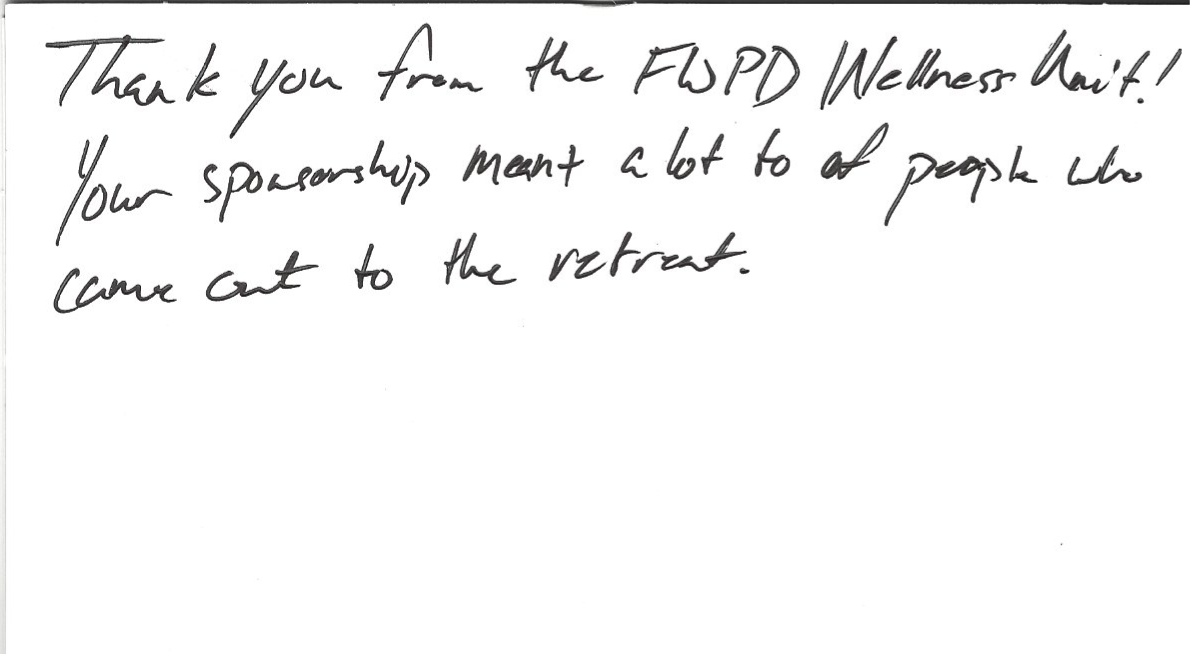 Thank you from the FWPD Wellness Unit!
Your sponsorship meant a lot to of people who
came out to the retreat.